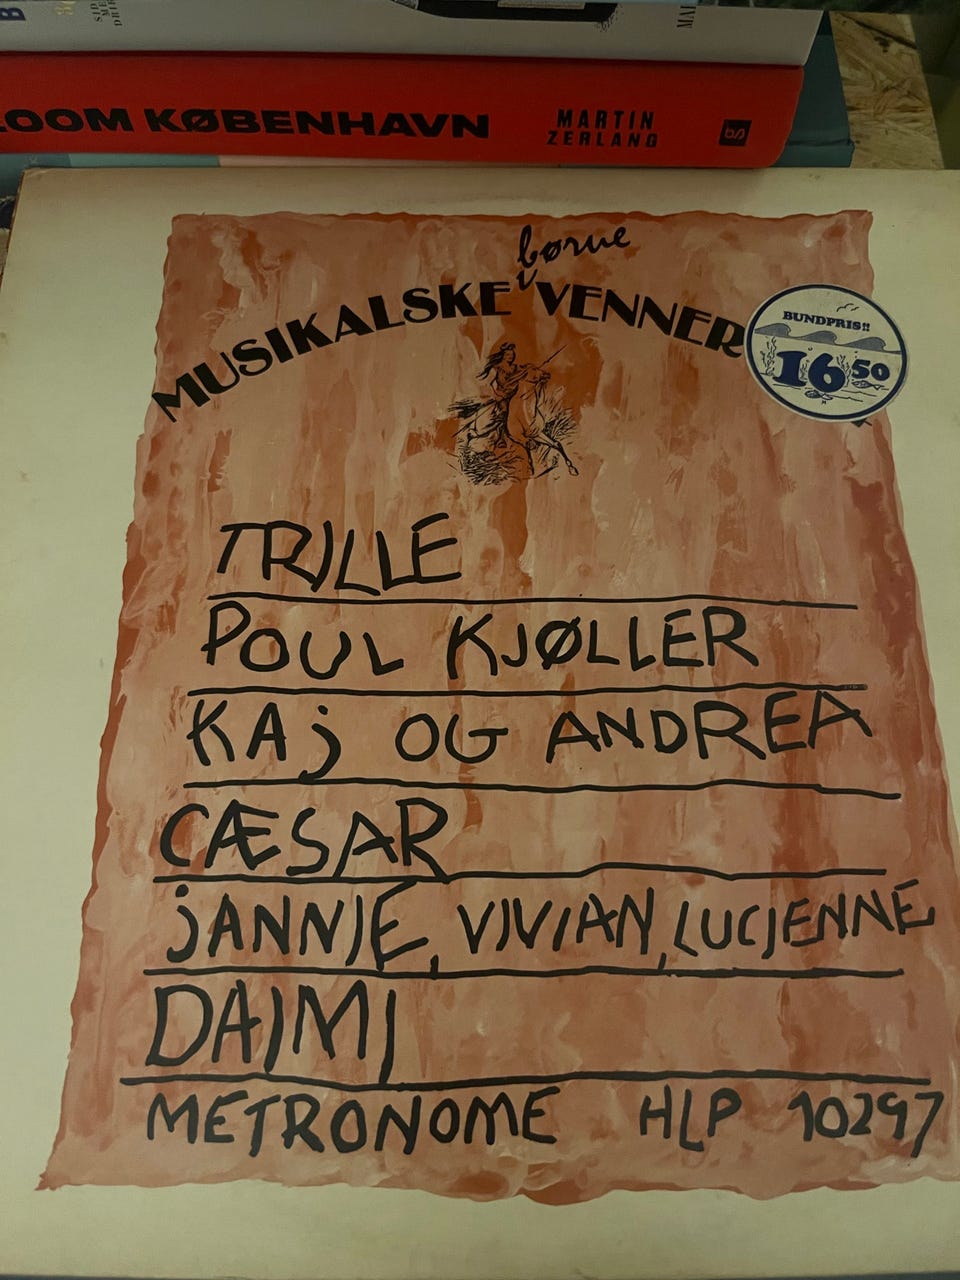 LOOM KØBENHAVN
MARTIN
ZERLANG
bs
børne
MUSIKALSKE VENNER
BUNDPRIS!!
16 50
TRILLE
POUL KJØLLER
KAj OG ANDREA
CÆSAR
jANNIE, VIVIAN, LUCIENNE
DAIMI
METRONOME HLP 10297